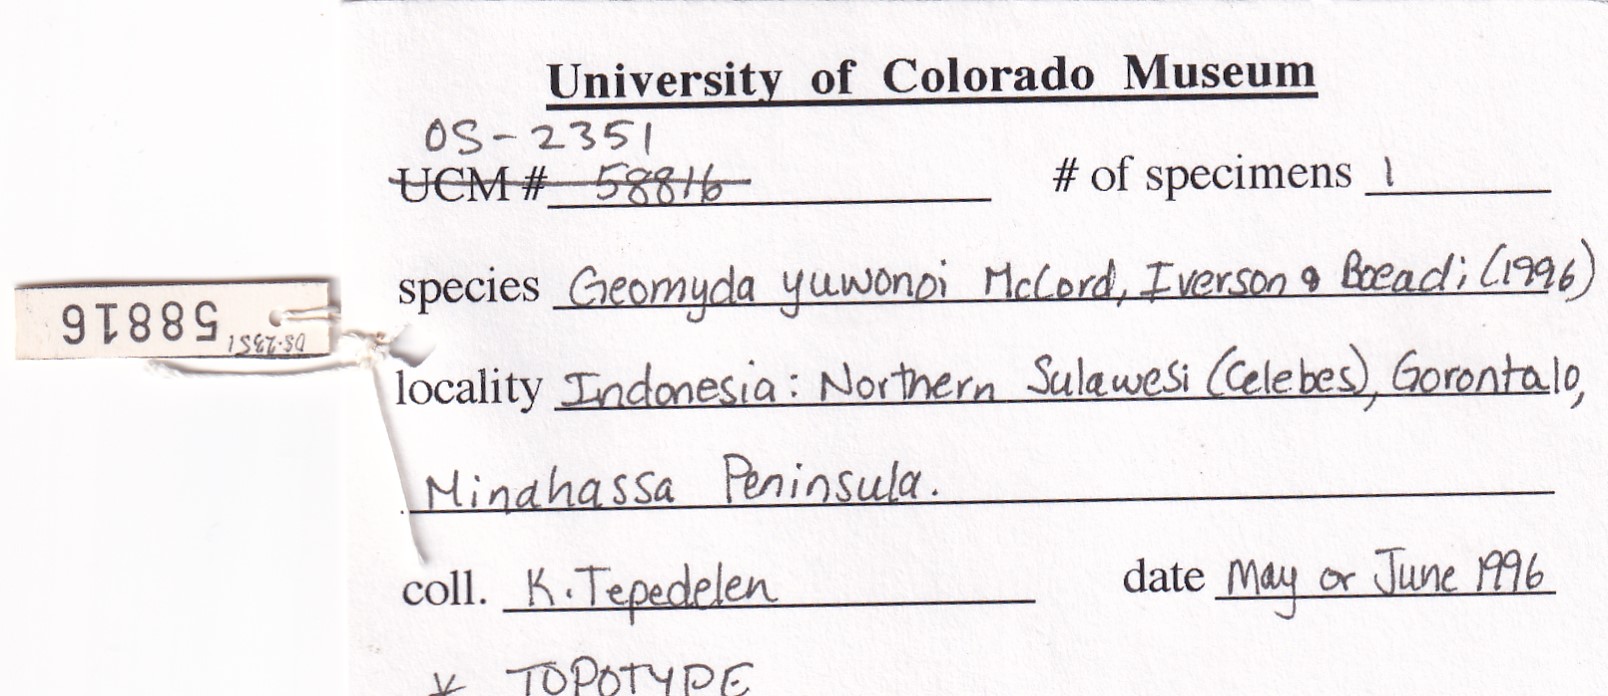 University of Colorado Museum
OS-2351
UCM # 58816 # of specimens 1
species Geomyda yuwonoi McCord, Iverson & Boeadi (1996)
locality Indonesia: Northern Sulawesi (Celebes), Gorontalo,
Minahassa Peninsula.
coll. K. Tepedelen date May or June 1996
* TOPOTYPE
58816
OS-2351